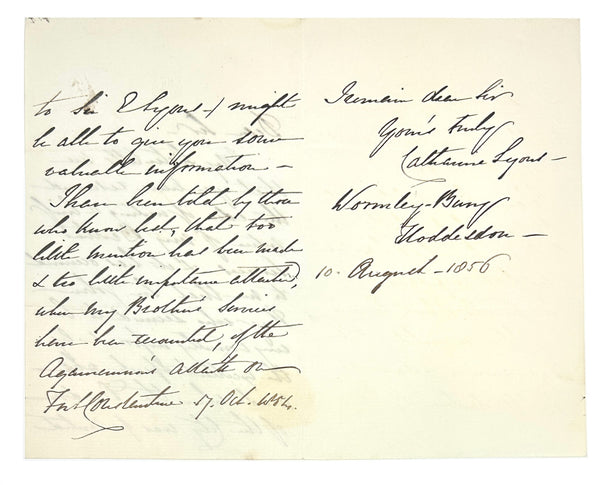 to Sir E Lyons -) might
be able to give you some
valuable information -
I have been told by those
who know best, that too
little mention has been made
& too little importance attached,
when my Brother's Services
have been recounted, of the
Agamemnon's attack on
Fort Constantine 17. Oct. 1854.
I remain dear Sir
Yours truly
Catharine Lyons -
Wormley-Bury
Hoddesdon -
10. August - 1856